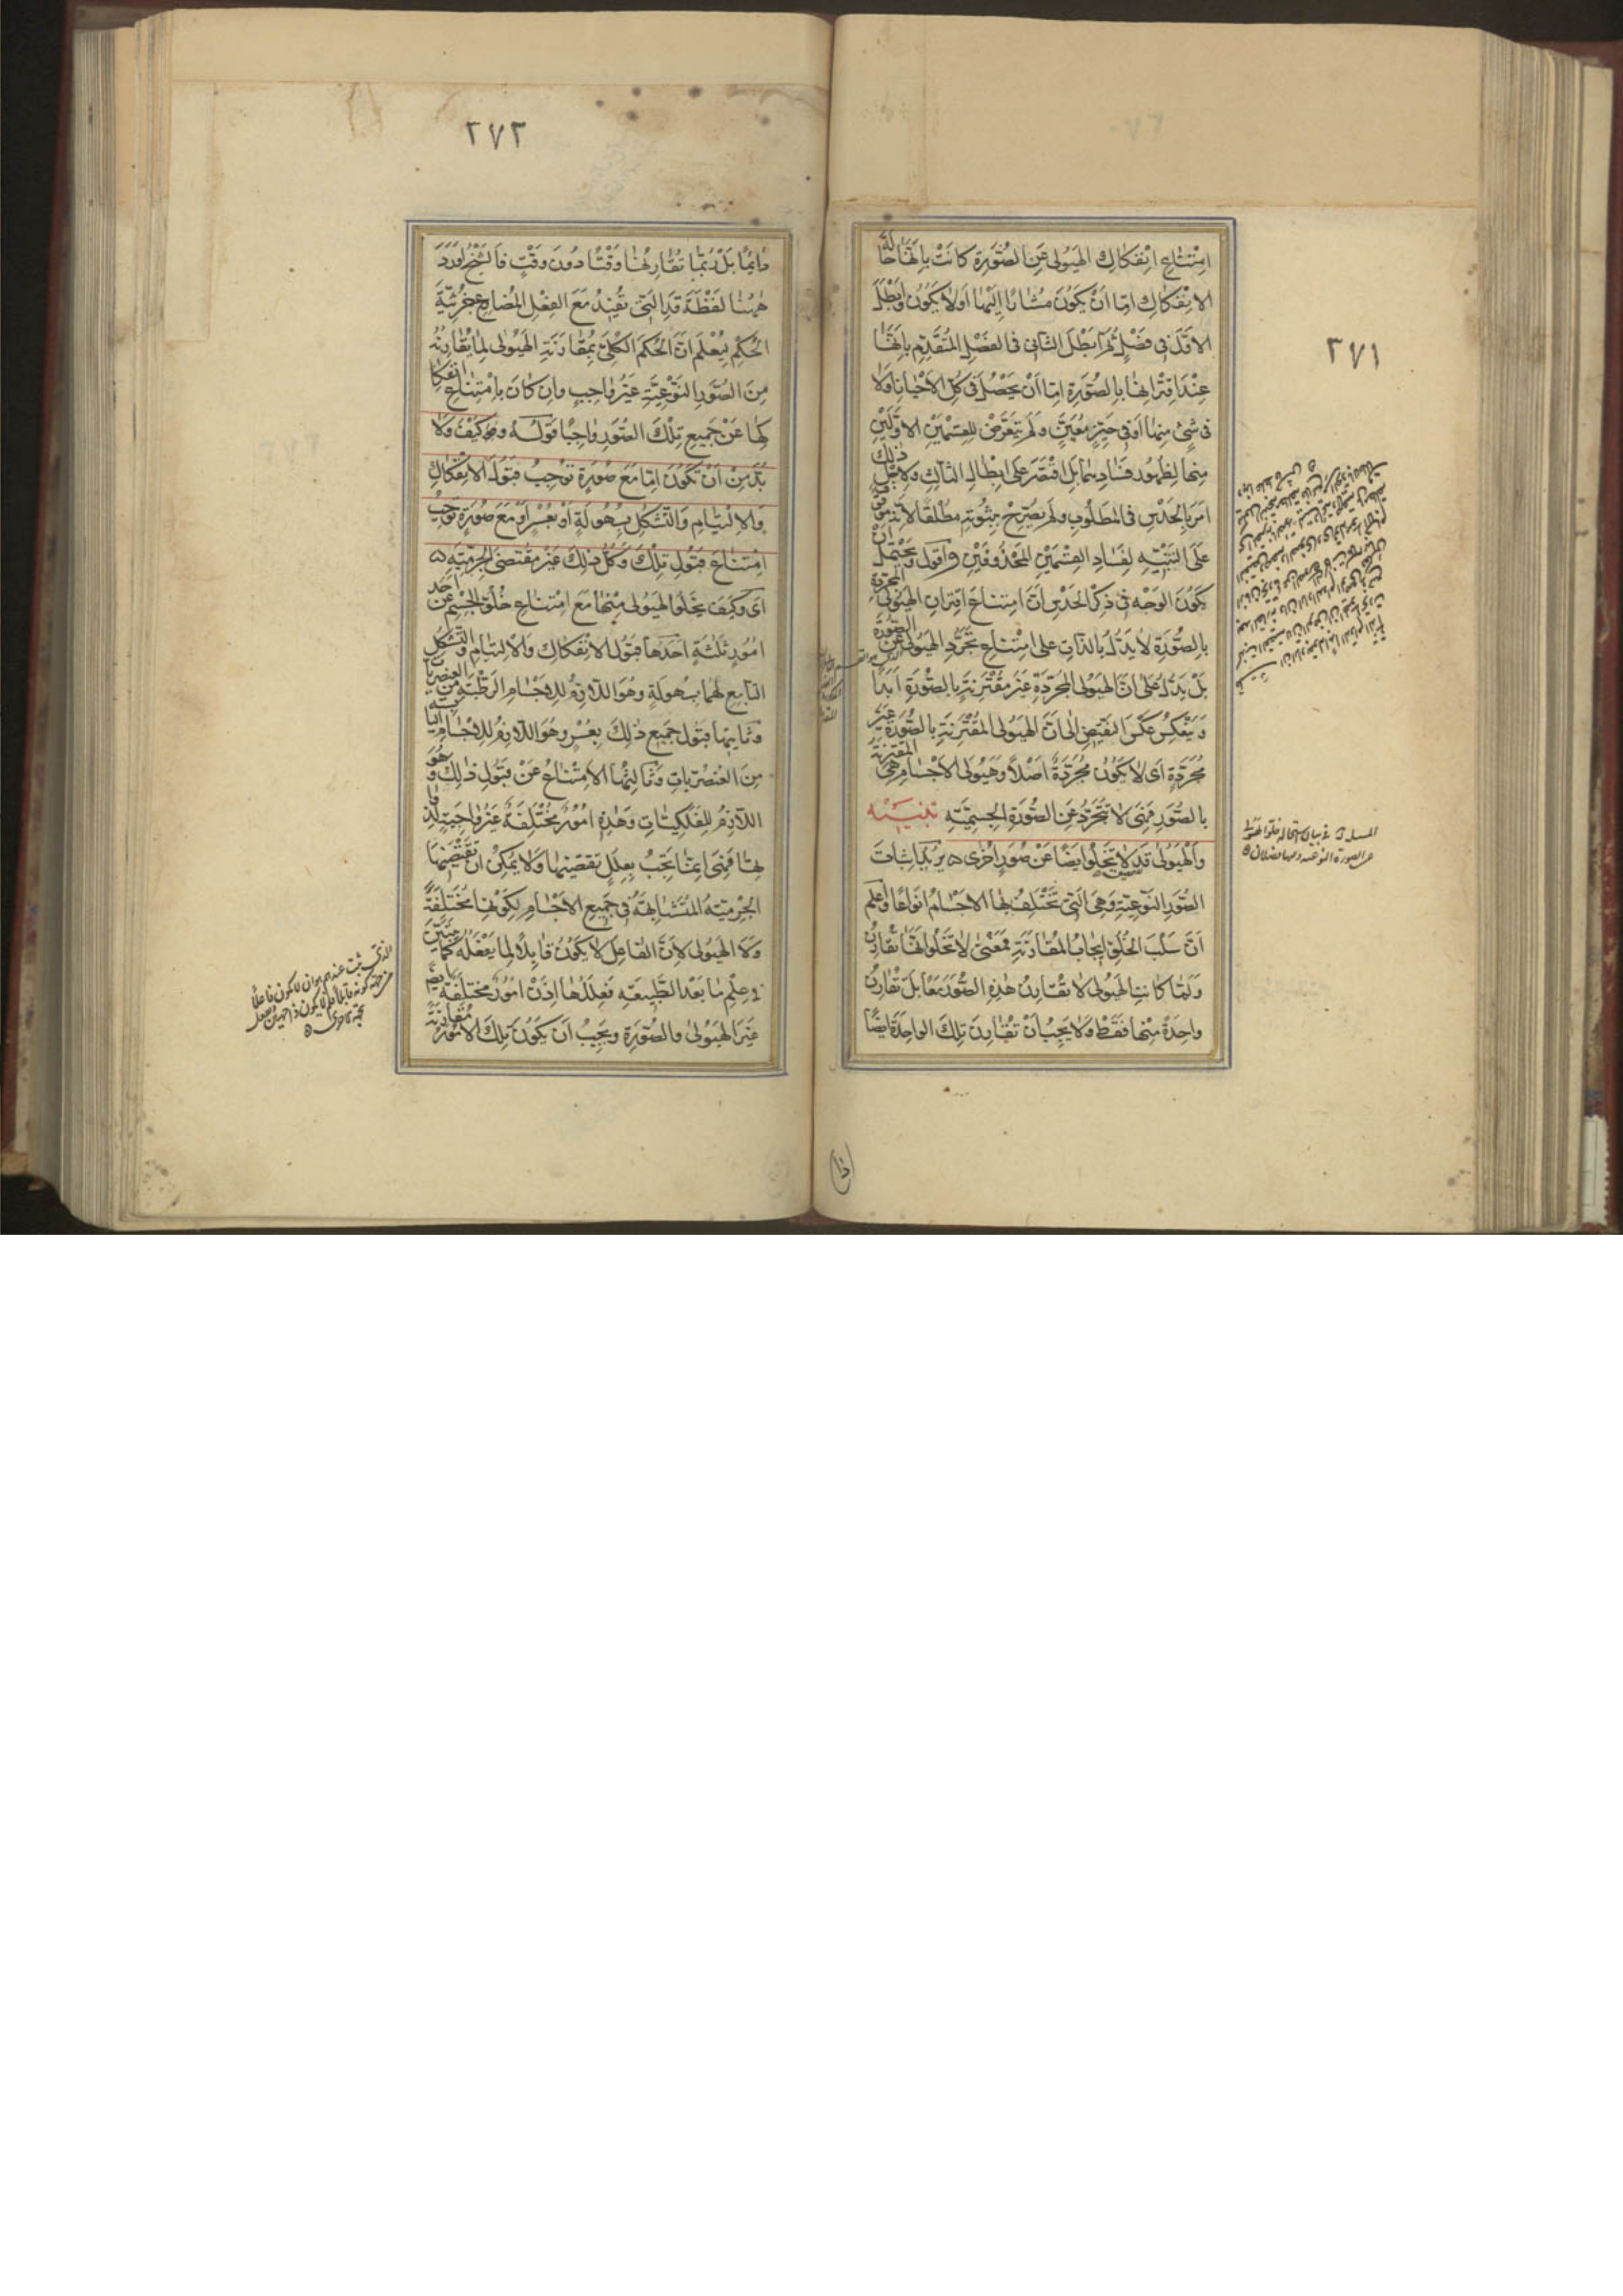 ٣٧١
امتناع انفكاك الهيولى عن الصورة كانت بانها حالة
الانفكاك اما ان يكون مشارا اليها اولا يكون وابطل
الاول فى فصل ثم ابطل الثانى فى الفصل المتقدم بانها
عند اقترانها بالصورة اما ان يحصل فى كل الاحيان او لا
فى شئ منها او فى حيز معين ولم يتعرض للقسمين الاولين
منها لظهور فسادهما بل اقتصر على ابطال الثالث ولاجل ذلك
امر بالحدس فى المطلوب ولم يصرح بثبوته مطلقا لانه موقوف
على التنبيه لفساد القسمين المحذوفين واقول ويحتمل ان
يكون الوجه فى ذكر الحدس ان امتناع اقتران الهيولى المجردة
بالصورة لا يدل بالذات على امتناع تجرد الهيولى عن الصورة
بل يدل على ان الهيولى المجردة غير مقترنة بالصورة ابدا
وينعكس عكس النقيض الى ان الهيولى المقترنة بالصورة غير
مجردة اى لا يكون مجردة اصلا وهيولى الاجسام هى المقترنة
بالصور فهى لا تتجرد عن الصورة الجسمية تنبيه
والهيولى قد لا تخلو ايضا عن صور اخرى ه يريد اثبات
الصور النوعية وهى التى تختلف بها الاجسام انواعا واعلم
ان سلب الخلو ايجاب المقارنة فمعنى لا تخلو انها تقارن
ولما كانت الهيولى لا تقارن هذه الصور معا بل تقارن
واحدة منها فقط ولا يجب ان تقارن تلك الواحدة ايضا
٣٧٢
دائما بل ربما تقارنها وقتا دون وقت فالشيخ اورد
ههنا لفظة قد التى تفيد مع الفعل المضارع جزئية
الحكم ليعلم ان الحكم الكلى بمقارنة الهيولى لما تقارنه
من الصور النوعية غير واجب وان كان بامتناع انفكا
كها عن جميع تلك الصور واجبا قوله وكيف ولا
بد من ان تكون اما مع صورة توجب قبول الانفكاك
والالتيام والتشكل بسهولة او بعسر او مع صورة توجب
امتناع قبول تلك وكل ذلك غير مقتضى الجرمية ه
اى وكيف يخلو الهيولى منها مع امتناع خلو الجسم عن احد
امور ثلثة احدها قبول الانفكاك والالتيام والتشكل
التابع لهما بسهولة وهو اللازم للاجسام الرطبة من العنصريات
وثانيها قبول جميع ذلك بعسر وهو اللازم للاجسام اليابسة
من العنصريات وثالثها الامتناع عن قبول ذلك وهو
اللازم للفلكيات وهذه امور مختلفة غير واجبة لذوا
تها فهى انما تجب بعلل تقتضيها ولا يمكن ان تقتضيها
الجرمية المتشابهة فى جميع الاجسام لكونها مختلفة
ولا الهيولى لان الفاعل لا يكون قابلا لما يفعله كما يتبين
فى علم ما بعد الطبيعه فعللها اذن امور مختلفة ايضا
غير الهيولى والصورة ويجب ان يكون تلك الامور مقارنة